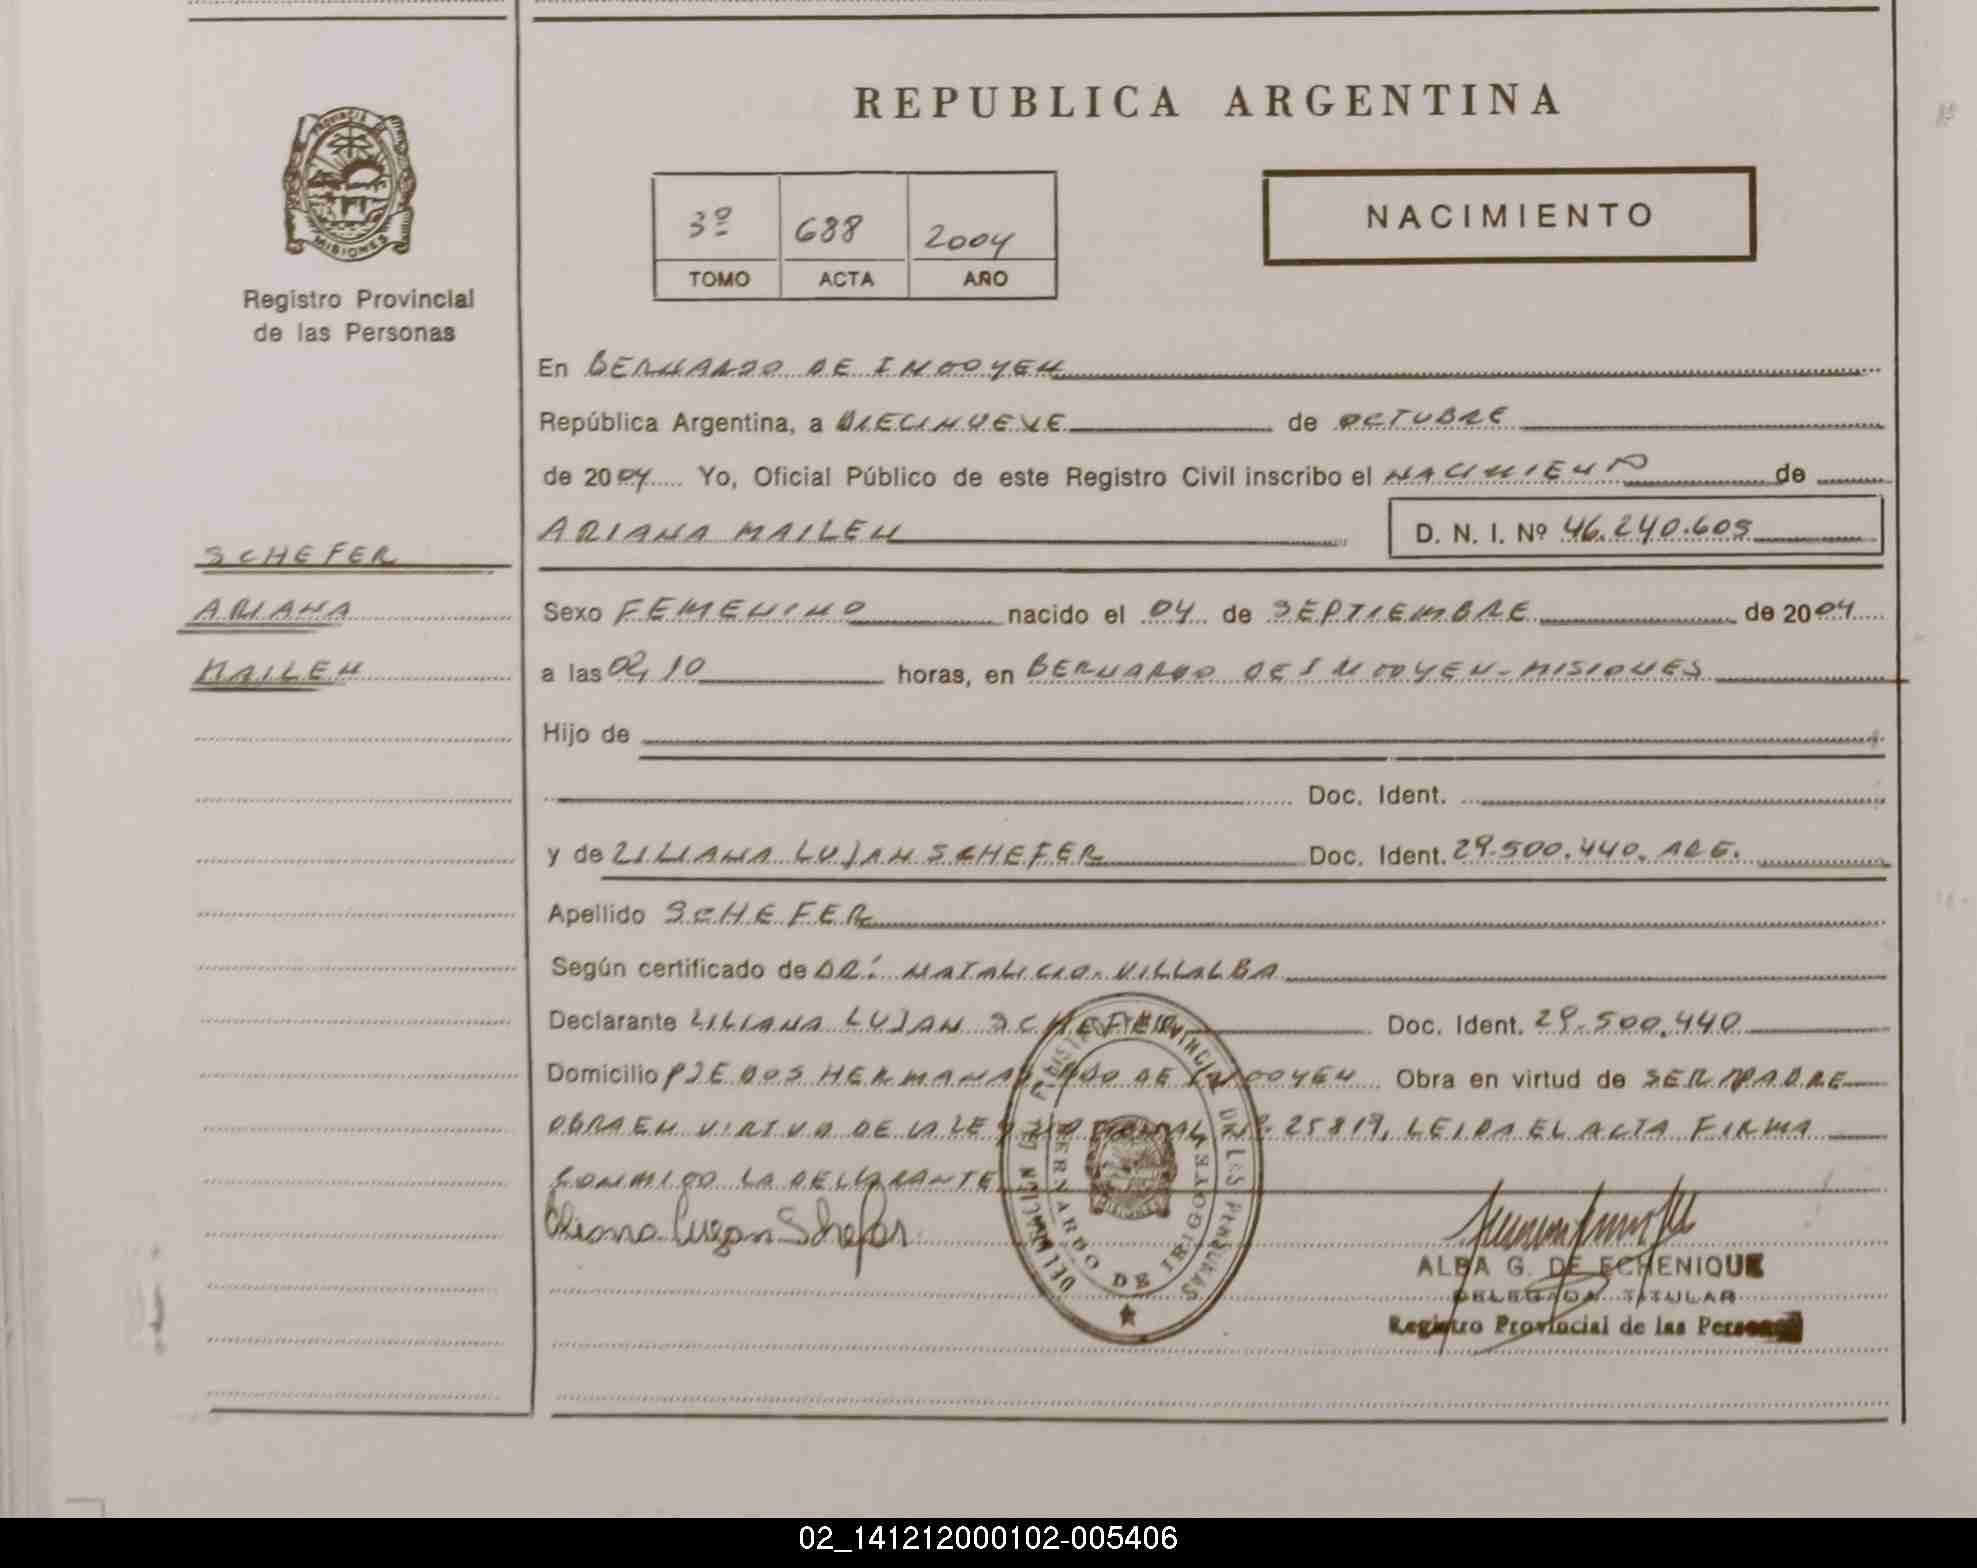 REPUBLICA ARGENTINA
PROVINCIA
MISIONES
Registro Provincial
de las Personas
3º 688 2004
TOMO ACTA AÑO
NACIMIENTO
En BERNARDO DE IRIGOYEN
República Argentina, a DIECINUEVE de OCTUBRE
de 2004 Yo, Oficial Público de este Registro Civil inscribo el NACIMIENTO de
ARIANA MAILEN D. N. I. Nº 46.240.609
SCHEFER
ARIANA
MAILEN
Sexo FEMENINO nacido el 04 de SEPTIEMBRE de 2004
a las 02,10 horas, en BERNARDO DE IRIGOYEN-MISIONES
Hijo de
Doc. Ident.
y de LILIANA LUJAN SCHEFER Doc. Ident. 29.500.440. ARG.
Apellido SCHEFER
Según certificado de DR: NATALICIO VILLALBA
Declarante LILIANA LUJAN SCHEFER Doc. Ident. 29.500.440
Domicilio PJE DOS HERMANAS DE IRIGOYEN Obra en virtud de SER MADRE
OBRA EN VIRTUD DE LA LEY NACIONAL Nº 25819, LEIDA EL ACTA FIRMA
CONMIGO LA DECLARANTE
Liliana Lujan Schefer
BERNARDO DE IRIGOYEN
ALBA G. DE ECHENIQUE
DELEGADA TITULAR
Registro Provincial de las Personas
02_141212000102-005406